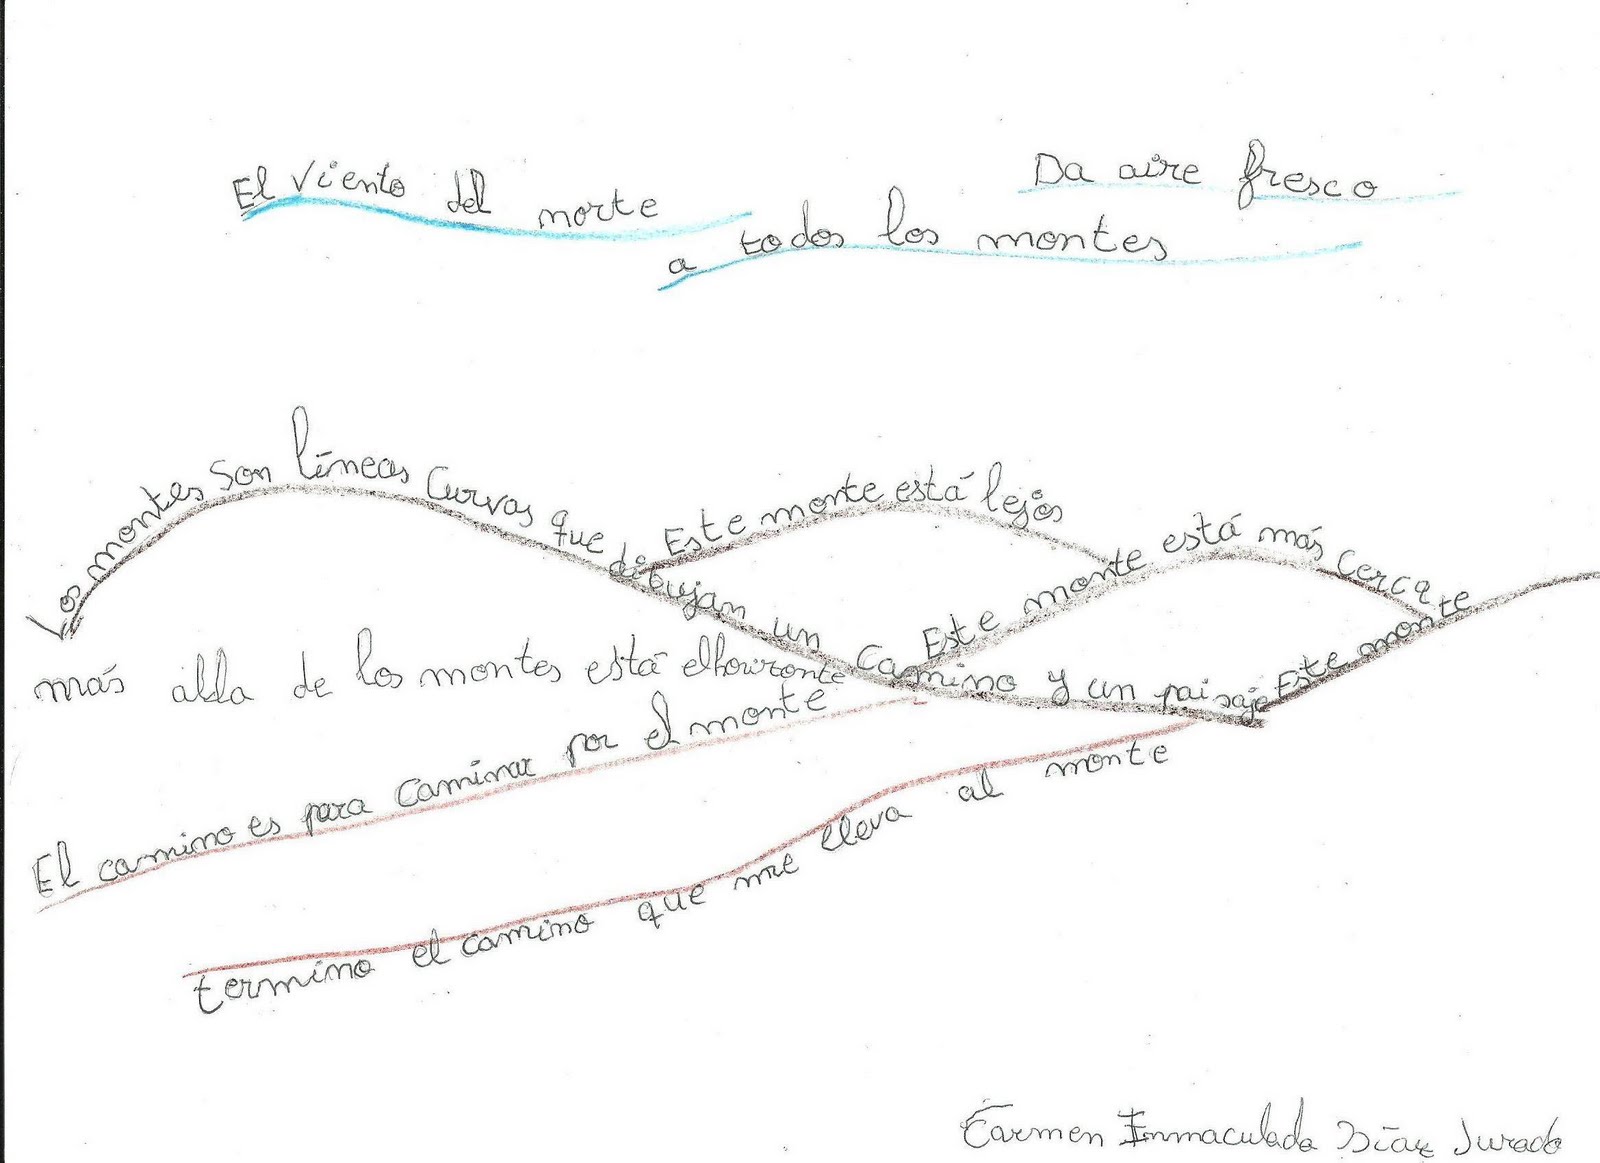 El viento del norte
Da aire fresco
a todos los montes
Los montes son líneas curvas que dibujan un camino y un paisaje
Este monte está lejos
Este monte está más cerca
Este monte
más alla de los montes está el horizonte
El camino es para caminar por el monte
termino el camino que me lleva al monte
Carmen Inmaculada Díaz Jurado